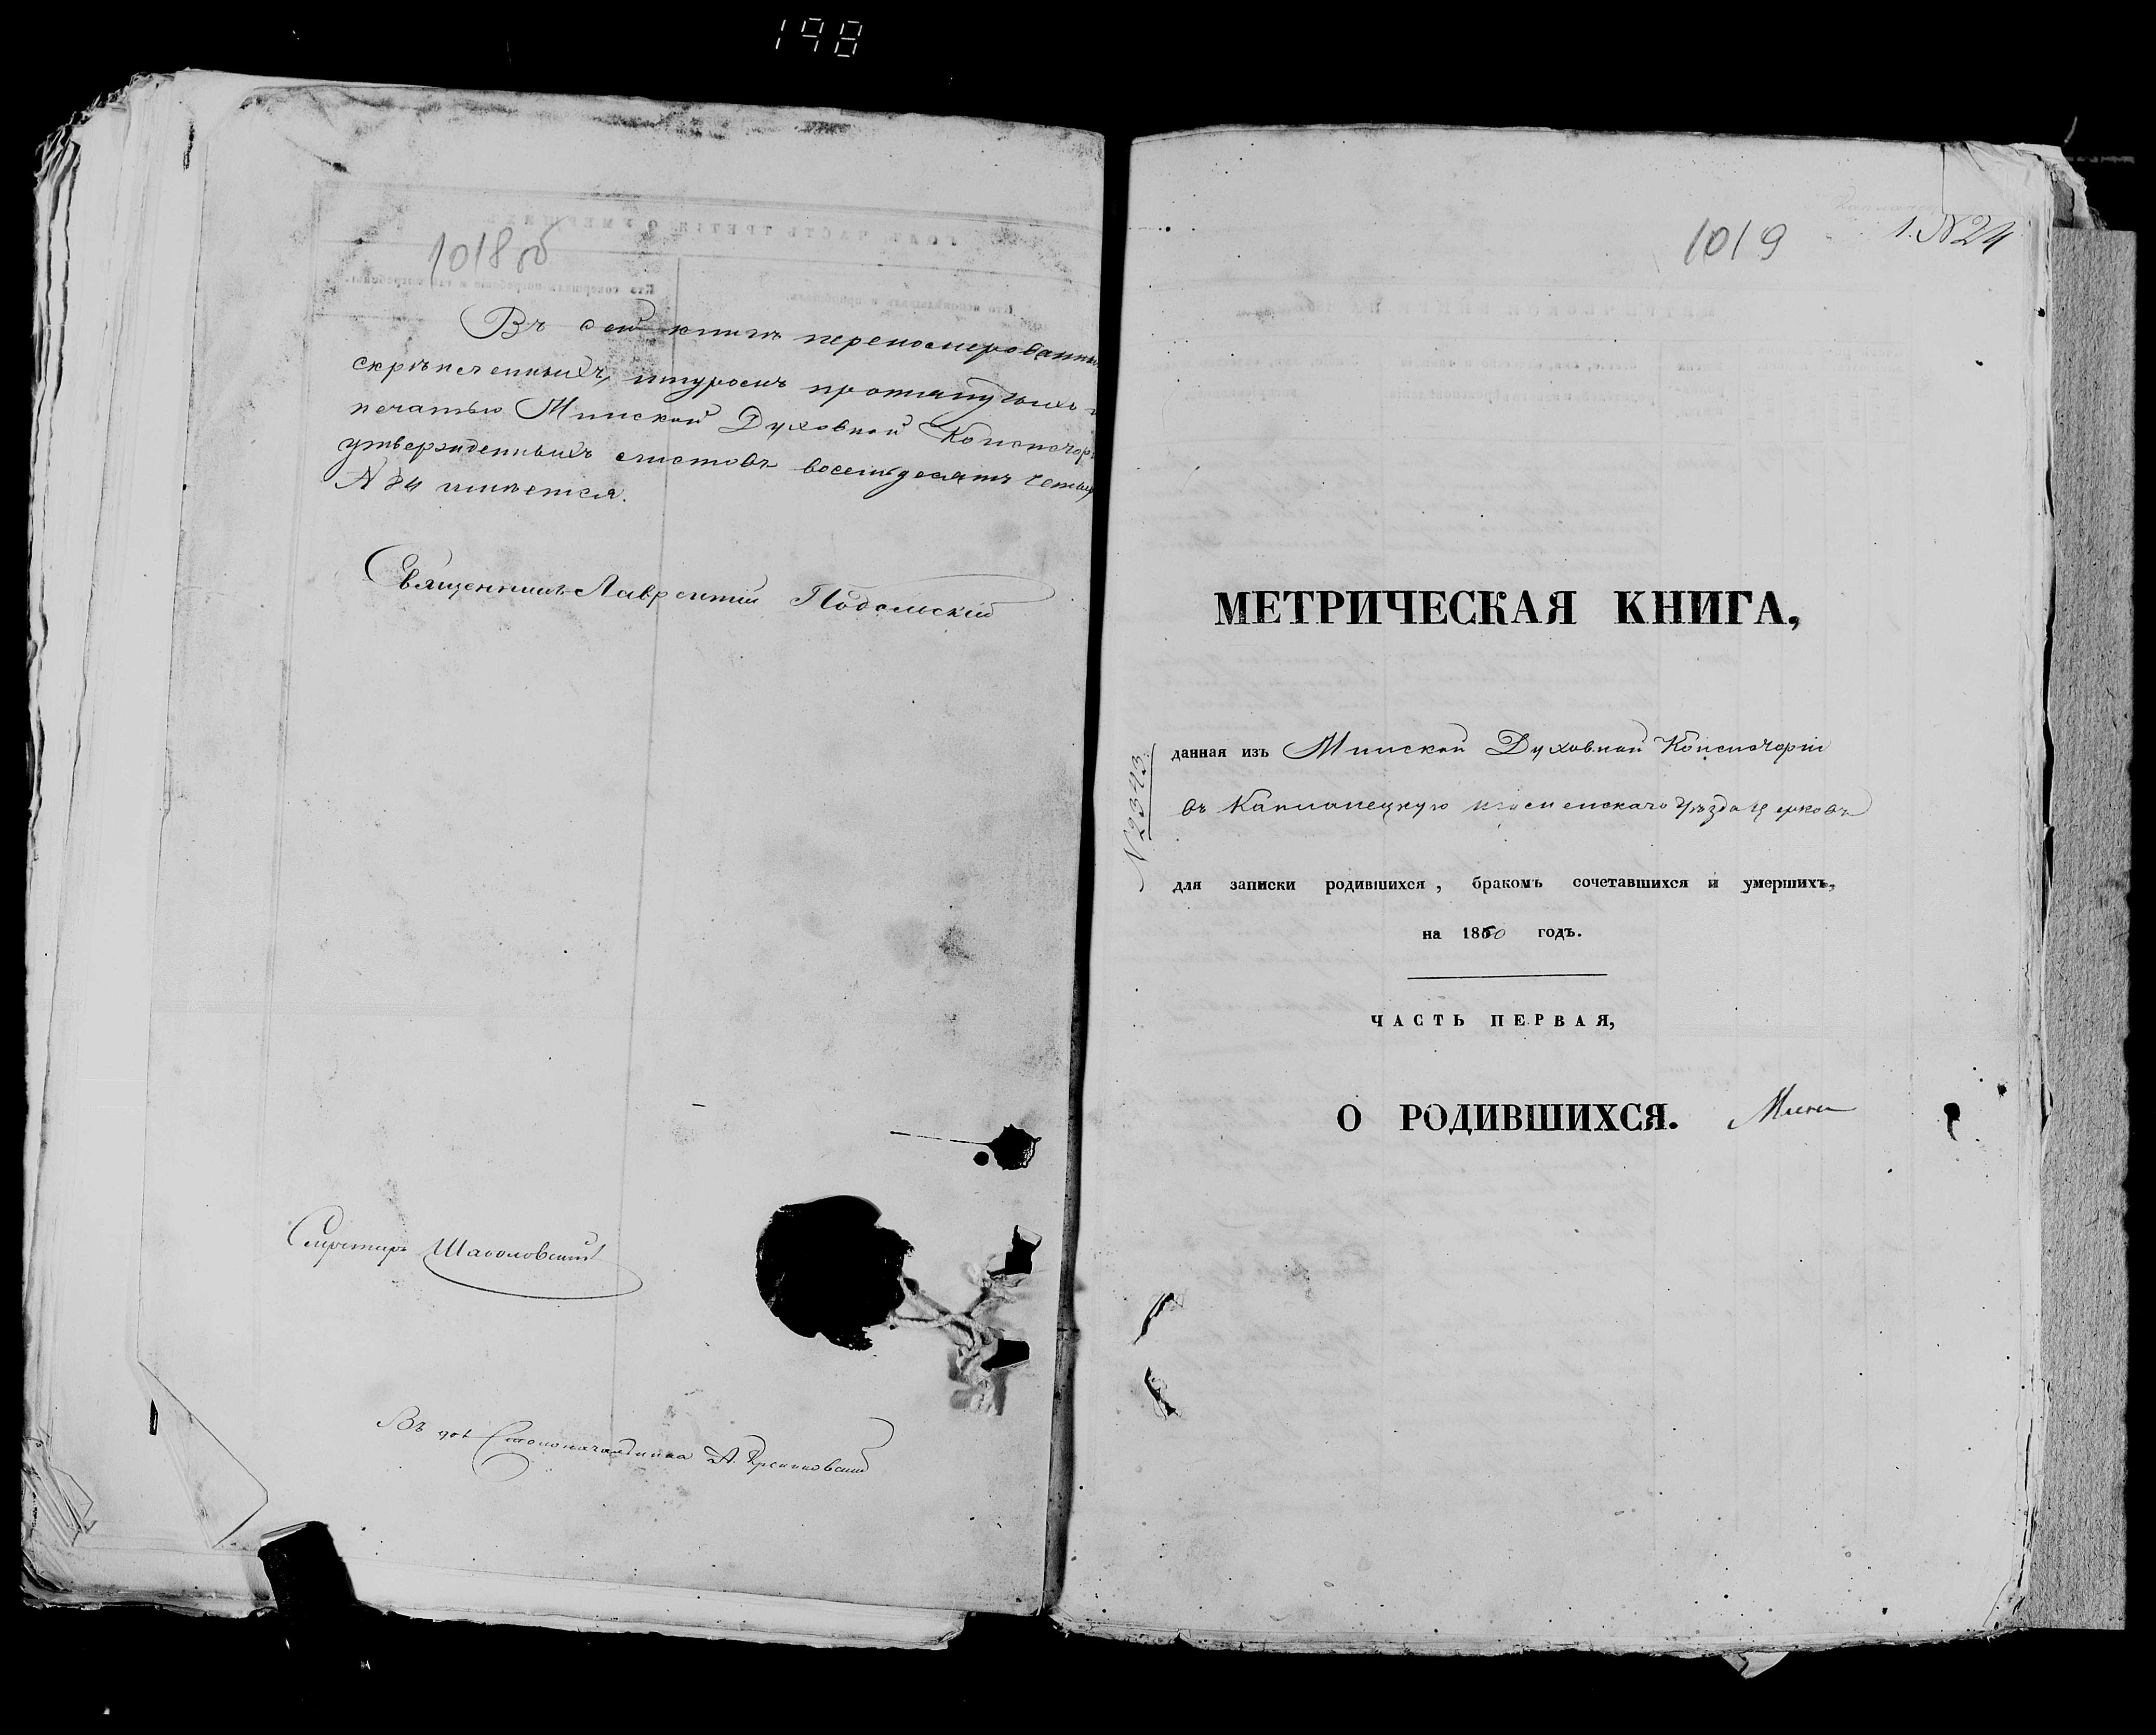 198
1018 об
Въ сей книгѣ перенумерованны
скрѣпленныхъ, шнуромъ протянутыхъ и
печатью Минской Духовной Консистор
утвержденныхъ листовъ восемьдесятъ четыр
№ 84 имѣется.
Священникъ Лаврентій Подольскій
Секретарь
Въ дол. Столоначальника А.
1019
1. №24
МЕТРИЧЕСКАЯ КНИГА,
№2343
данная изъ Минской Духовной Консисторіи
въ Каплонецкую Игуменскаго Уѣзда церковь
для записки родившихся, бракомъ сочетавшихся и умершихъ,
на 1850 годъ.
ЧАСТЬ ПЕРВАЯ,
О РОДИВШИХСЯ.